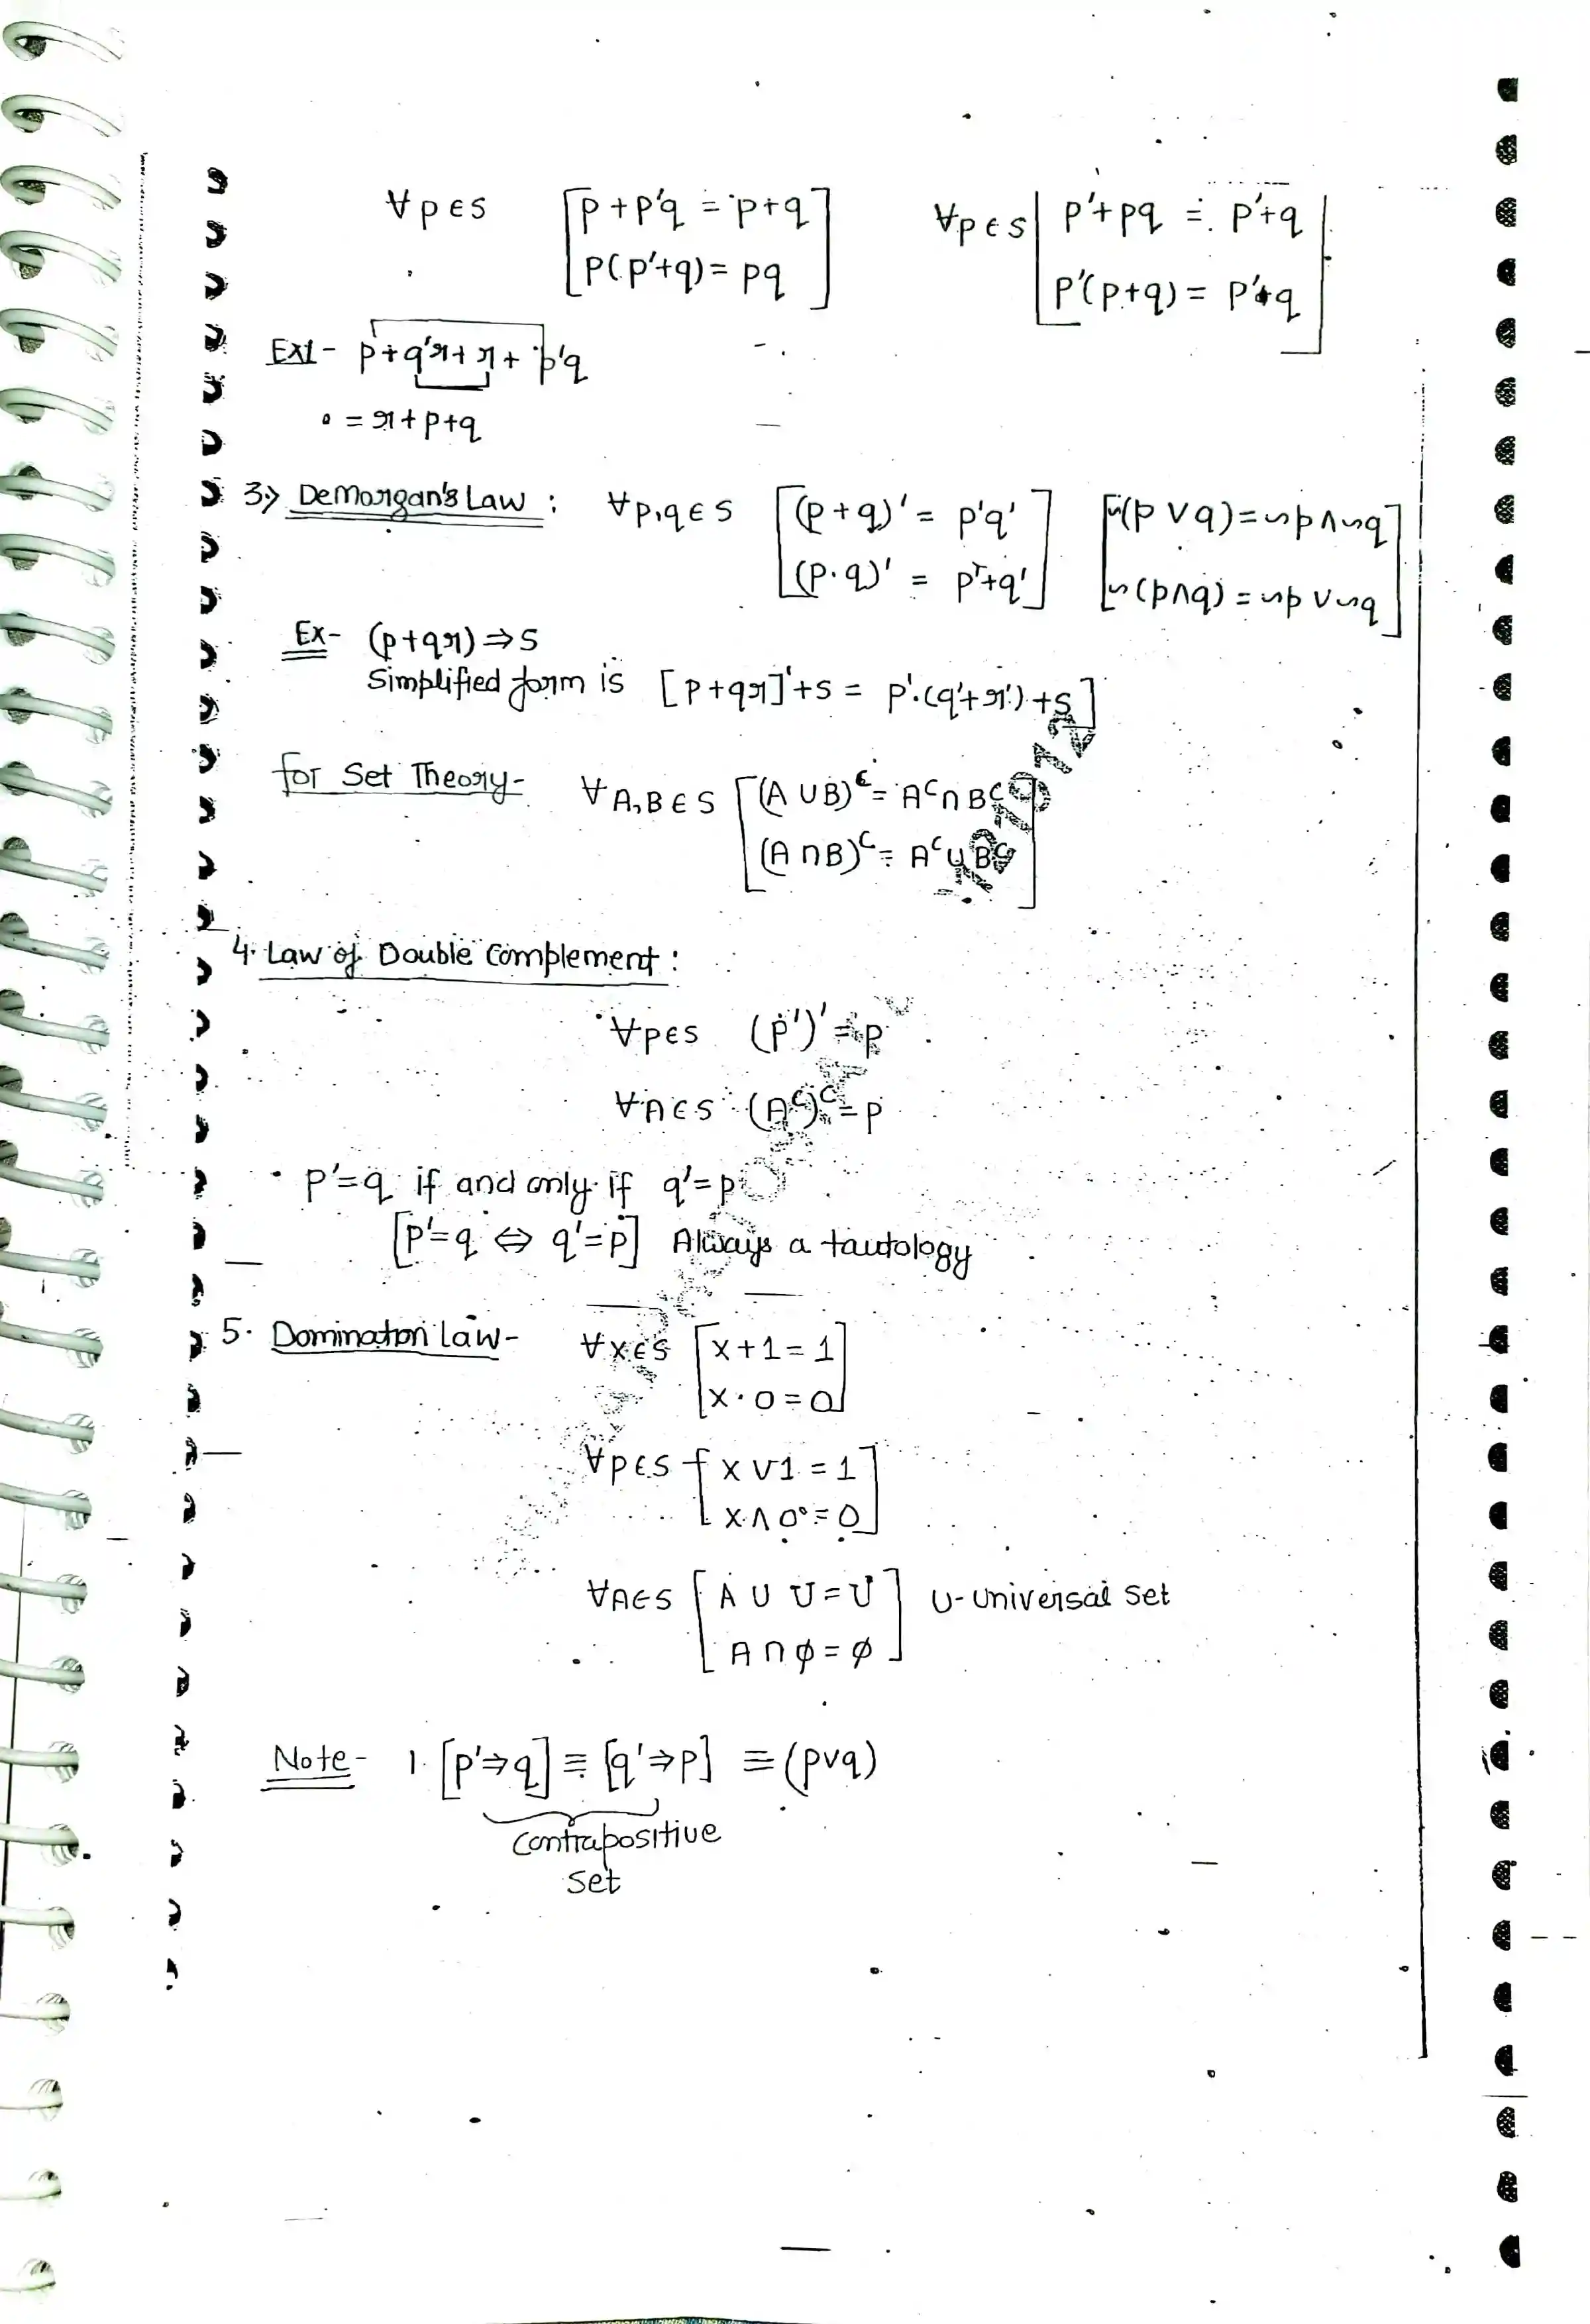 ∀p∈s [p+p'q = p+q] ∀p∈s [p'+pq = p'+q]
[p(p'+q)= pq] [p'(p+q)= p'+q]
Ex1- p+q'r+r+p'q
= r+p+q
3.> DeMorgan's Law : ∀p,q∈s [(p+q)' = p'q'] [~(p∨q)=~p∧~q]
[(p·q)' = p'+q'] [~(p∧q)=~p∨~q]
Ex- (p+qr)⇒s
Simplified form is [p+qr]'+s = p'.(q'+r')+s]
for Set Theory- ∀A,B∈s [(A∪B)ᶜ= Aᶜ∩Bᶜ
(A∩B)ᶜ= Aᶜ∪Bᶜ]
4. Law of Double Complement :
∀p∈s (p')'=p
∀A∈s (Aᶜ)ᶜ=p
· p'=q if and only if q'=p
[p'=q ⇔ q'=p] Always a tautology
5. Domination Law- ∀x∈s [x+1=1]
[x·0=0]
∀p∈s [x∨1=1]
[x∧0=0]
∀A∈s [A∪U=U] U-Universal Set
[A∩ϕ=ϕ]
Note- 1. [p'⇒q]≡[q'⇒p] ≡(p∨q)
Contrapositive
Set